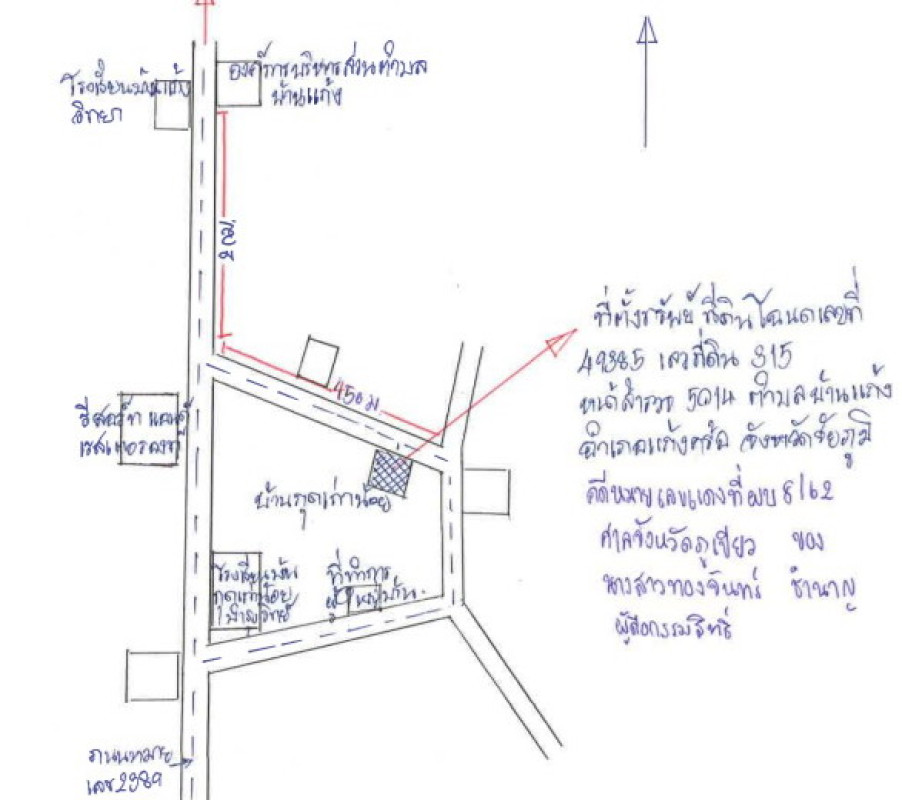 องค์การบริหารส่วนตำบล
บ้านแก้ง
โรงเรียนบ้านแก้ง
วิทยา
450 ม
ที่ตั้งทรัพย์ ที่ดินโฉนดเลขที่
49385 เลขที่ดิน 315
หน้าสำรวจ 5014 ตำบลบ้านแก้ง
อำเภอแก้งคร้อ จังหวัดชัยภูมิ
คดีหมายเลขแดงที่ ผบ 8/62
ศาลจังหวัดภูเขียว ของ
นางสาวทองจันทร์ ชำนาญ
ผู้ถือกรรมสิทธิ์
รีสอร์ท แอนด์
เรสเตอรองท์
บ้านกุดเก่าน้อย
โรงเรียนบ้าน
กุดเก่าน้อย
ที่ทำการ
ผู้ใหญ่บ้าน
ถนนหมาย
เลข 2389